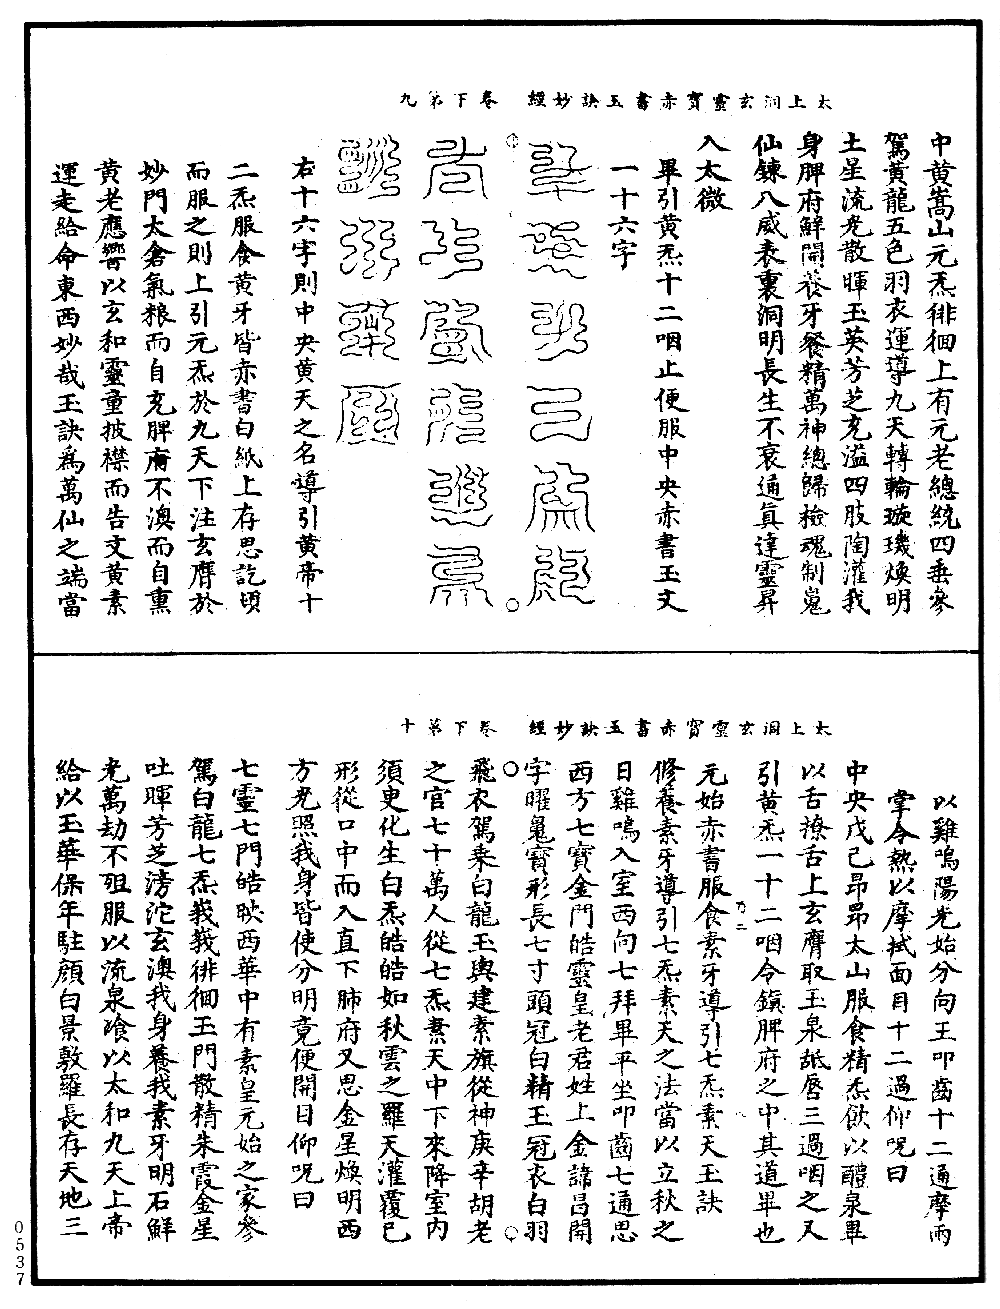 太上洞玄靈寶赤書玉訣妙經　卷下第九
中黃嵩山元炁徘徊上有元老總統四垂參
駕黃龍五色羽衣運導九天轉輪璇璣煥明
土星流光散暉玉英芳芝充溢四肢陶灌我
身脾府鮮開養牙餐精萬神總歸檢魂制䰟
仙鍊八威表裏洞明長生不衰通真達靈昇
入太微
畢引黃炁十二咽止便服中央赤書玉文
一十六字
右十六字則中央黃天之名導引黃帝十
二炁服食黃牙皆赤書白紙上存思訖頃
而服之則上引元炁於九天下注玄膺於
妙門太倉氣粮而自充脾府不溴而自熏
黃老應響以玄和靈童披襟而告文黃素
運走給命東西妙哉玉訣為萬仙之端當
太上洞玄靈寶赤書玉訣妙經　卷下第十
以雞鳴陽光始分向王叩齒十二通摩兩
掌令熱以摩拭面目十二過仰呪曰
中央戊己昂昂太山服食精炁飲以醴泉畢
以舌撩舌上玄膺取玉泉舐唇三過咽之又
引黃炁一十二咽令鎮脾府之中其道畢也
元始赤書服食素牙導引七炁素天玉訣
修養素牙導引七炁素天之法當以立秋之
日雞鳴入室西向七拜畢平坐叩齒七通思
西方七寶金門皓靈皇老君姓上金諱昌開
字曜䰟寶形長七寸頭冠白精玉冠衣白羽
飛衣駕乘白龍玉輿建素旗從神庚辛胡老
之官七十萬人從七炁素天中下來降室內
須臾化生白炁皓皓如秋雲之羅天灌覆己
形從口中而入直下肺府又思金星煥明西
方光照我身皆使分明竟便開目仰呪曰
七靈七門皓映西華中有素皇元始之家參
駕白龍七炁峩峩徘徊玉門散精朱霞金星
吐暉芳芝滂沱玄澳我身養我素牙明石鮮
光萬劫不徂服以流泉飡以太和九天上帝
給以玉華保年駐顏白景敷羅長存天地三
0537